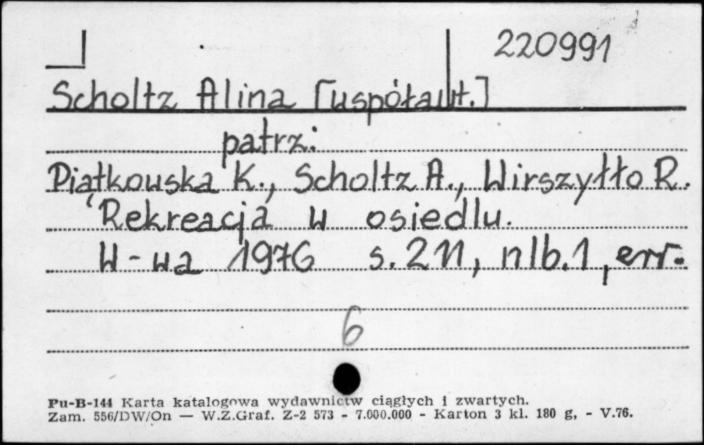 220991
Scholtz Alina [współaut.]
patrz:
Piątkowska K., Scholtz A., Wirszyłło R.
Rekreacja w osiedlu.
W-wa 1976 s. 211, nlb. 1, err.
6
Pu-B-144 Karta katalogowa wydawnictw ciągłych i zwartych.
Zam. 556/DW/On — W.Z.Graf. Z-2 573 - 7.000.000 - Karton 3 kl. 180 g, - V.76.